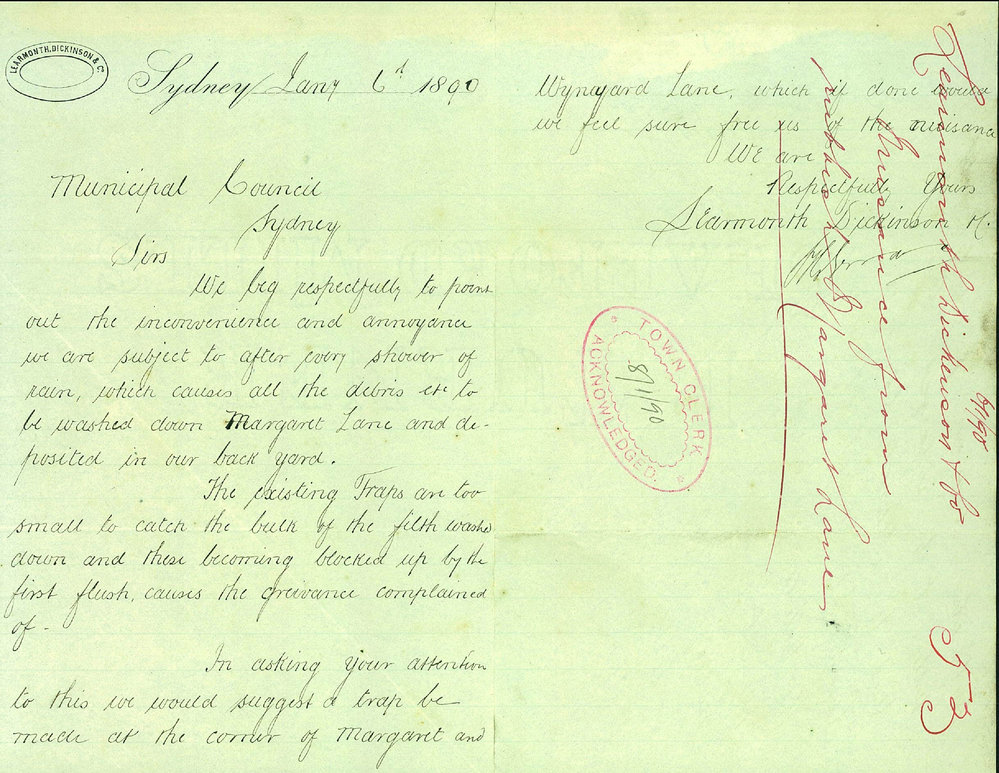 LEARMONTH, DICKINSON & Co.
Sydney Jany 6th 1890
Municipal Council
Sydney
Sirs
We beg respectfully to point
out the inconvenience and annoyance
we are subject to after every shower of
rain, which causes all the debris etc to
be washed down Margaret Lane and de-
posited in our back yard.
The existing Traps are too
small to catch the bulk of the filth washed
down and these becoming blocked up by the
first flush, causes the greivance complained
of -
In asking your attention
to this we would suggest a trap be
made at the corner of Margaret and
Wynyard Lane, which if done would
we feel sure free us of the nuisance
We are
Respectfully Yours
Learmonth Dickinson
TOWN CLERK
8/1/90
ACKNOWLEDGED.
Learmonth Dickenson & Co
/1/90
Nuisance from
rubbish Margaret Lane
53